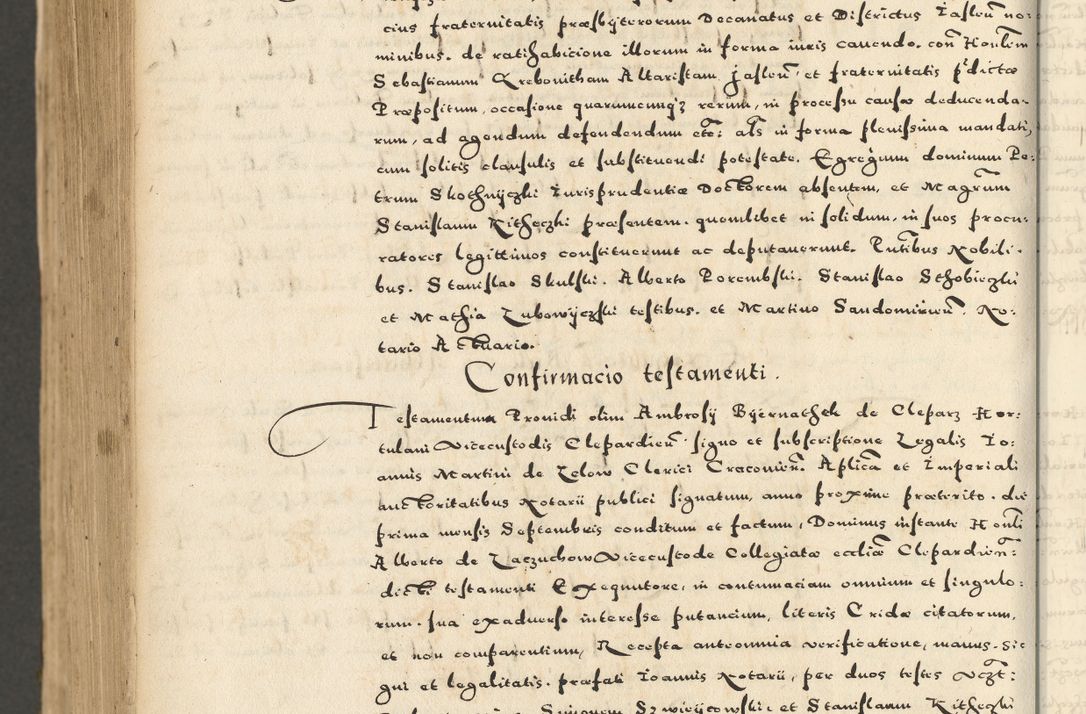 cius fraternitatis præsbÿterorum Decanatus et Districtus Iaslen̄ no:
minibus. de ratihabicione illorum in forma iuris cauendo. con̄ Honlem
Sebastianum Grebonitham Altaristam Jaslen̄ et fraternitatis p̄dictæ
Præpositum, occasione quarumcumqȝ rerum, in processu causæ deducenda-
rum, ad agendum defendendum etc̄: als̄ in forma plenissima mandati,
cum solitis clausulis et substituendi potestate. Egregium dominum Pe:
trum Skothnÿczki Iurisprudentiæ Doctorem absentem, et Magr̄um
Stanislaum Kitheczki præsentem. quemlibet in solidum, in suos procu:
ratores legittimos constituerunt ac deputauerunt. Pn̄tibus Nobili-
bus. Stanislao Skulski. Alberto Porembski. Stanislao Sthobieczki
et Mathia Zubowÿczski testibus. et Martino Sandomirien̄. No:
tario Actuario.
Confirmacio testamenti.
Testamentum Prouidi olim Ambrosÿ Bÿernathek de Cleparz Hor:
tulani Vicecustodis Clepardien̄ signo et subscriptione Legalis Io:
annis Martini de Zelow Clerici Cracouien̄. Aplica et Imperiali
auctoritatibus Notarii publici signatum, anno proxime præterito. die
prima mensis Septembris conditum et factum, Dominus instante Honli
Alberto de Zaczuchow Vicecustode Collegiatæ eccliæ Clepardien̄:
dicti testamenti Exequutore, in contumaciam omnium et singulo:
rum. sua exaduerso interesse putancium, literis Cridæ citatorum,
et non comparentium, Recepta anteomnia verificatione, manus. Si
gni et legalitatis. præfati Ioannis Notarii, per duos testes vczt:
Simonem Szwieÿcowski. et Stanislaum Kitheczki